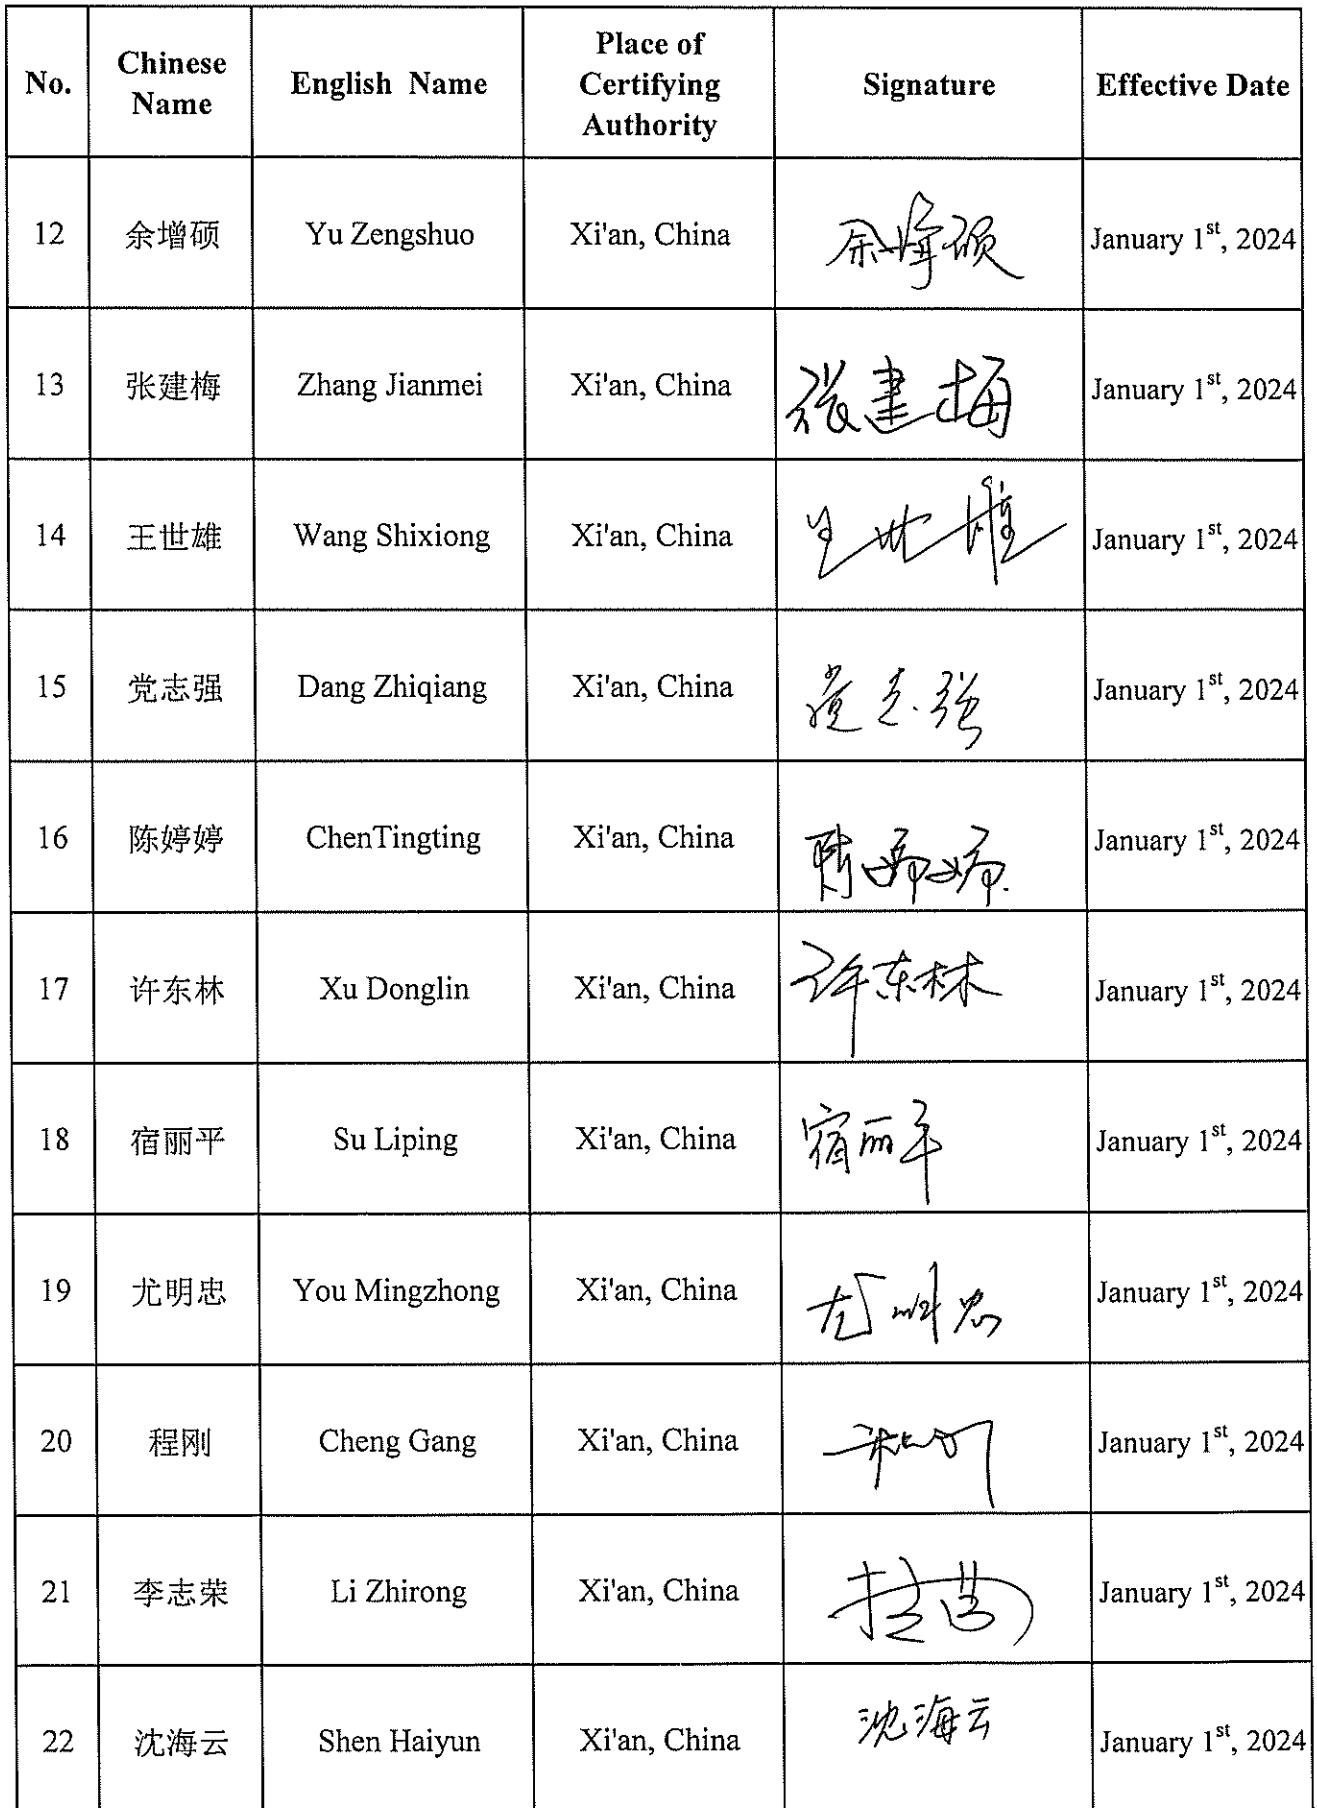 No. Chinese Name English Name Place of Certifying Authority Signature Effective Date
12 余增硕 Yu Zengshuo Xi'an, China 余增硕 January 1st, 2024
13 张建梅 Zhang Jianmei Xi'an, China 张建梅 January 1st, 2024
14 王世雄 Wang Shixiong Xi'an, China 王世雄 January 1st, 2024
15 党志强 Dang Zhiqiang Xi'an, China 党志强 January 1st, 2024
16 陈婷婷 ChenTingting Xi'an, China 陈婷婷 January 1st, 2024
17 许东林 Xu Donglin Xi'an, China 许东林 January 1st, 2024
18 宿丽平 Su Liping Xi'an, China 宿丽平 January 1st, 2024
19 尤明忠 You Mingzhong Xi'an, China 尤明忠 January 1st, 2024
20 程刚 Cheng Gang Xi'an, China 程刚 January 1st, 2024
21 李志荣 Li Zhirong Xi'an, China January 1st, 2024
22 沈海云 Shen Haiyun Xi'an, China 沈海云 January 1st, 2024